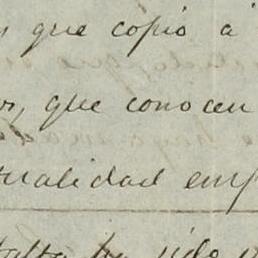 que copio a
que conocen
tualidad emp
falta ha sido